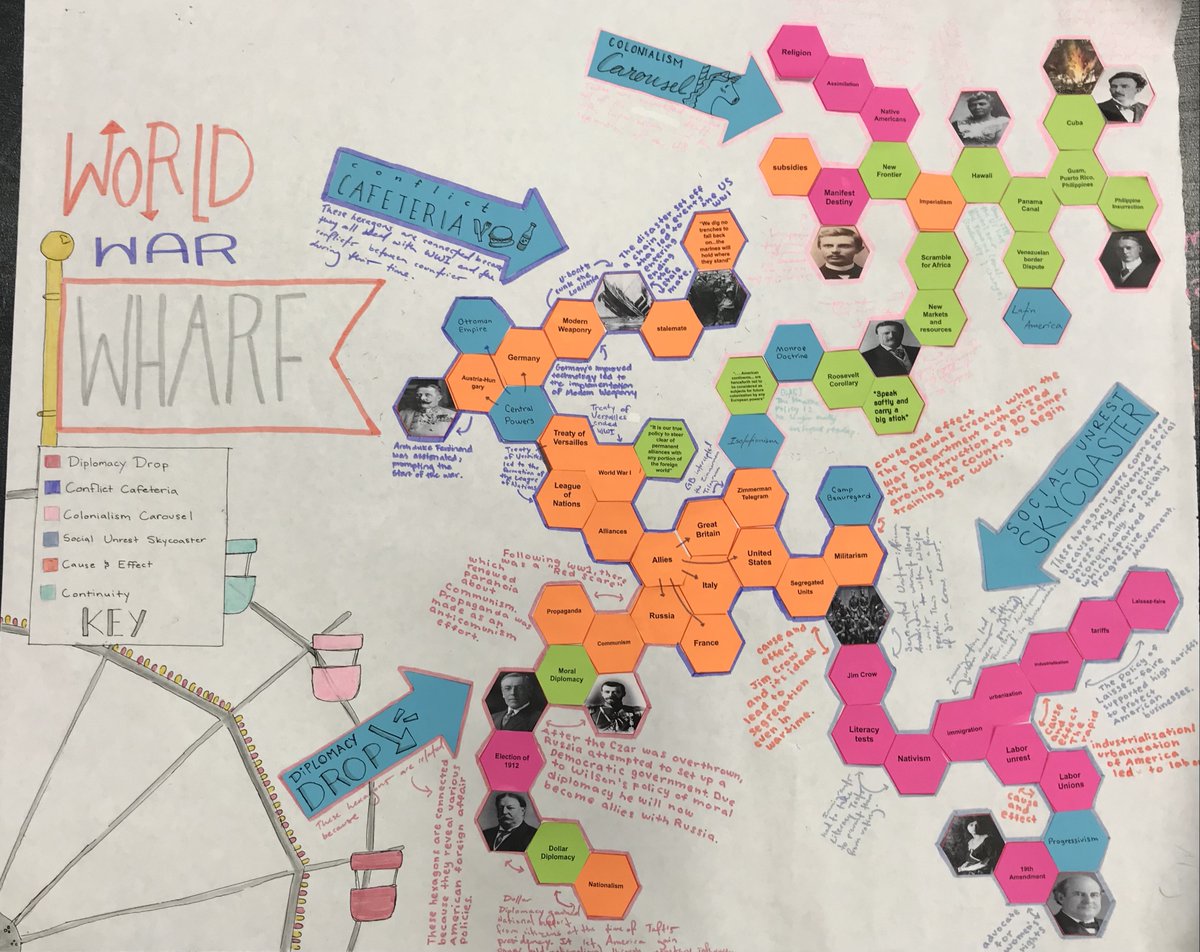 WORLD
WAR
WHARF
Diplomacy Drop
Conflict Cafeteria
Colonialism Carousel
Social Unrest Skycoaster
Cause & Effect
Continuity
KEY
COLONIALISM
Carousel
conflict
CAFETERIA
These hexagons are connected because
they all deal with WWI and the
conflicts between countries
during their time.
Religion
Assimilation
Native
Americans
subsidies
Manifest
Destiny
New
Frontier
Imperialism
Hawaii
Cuba
Guam,
Puerto Rico,
Philippines
Panama
Canal
Philippine
Insurrection
Scramble
for Africa
Venezuelan
border
Dispute
New
Markets
and
resources
Latin
America
Monroe
Doctrine
Roosevelt
Corollary
"Speak
softly and
carry a
big stick"
"... American
continents... are
henceforth not to
be considered as
subjects for future
colonization by any
European powers"
Isolationism
"We dig no
trenches to
fall back
on...the
marines will
hold where
they stand"
The disaster set off
a chain of events
U-boats
sunk the
Lusitania
stalemate
Modern
Weaponry
Ottoman
Empire
Germany
Austria-Hun
gary
Central
Powers
Germany's improved
technology led to
the implementation
of Modern Weaponry
Archduke Ferdinand
was assassinated,
prompting the
start of the war.
Treaty of
Versailles
ended
WWI
Treaty of
Versailles
led to the
formation of
the League
of Nations
Treaty of
Versailles
World War I
League of
Nations
"It is our true
policy to steer
clear of
permanent
alliances with
any portion of
the foreign
world"
Alliances
Allies
Great
Britain
Zimmerman
Telegram
United
States
Italy
Russia
France
Segregated
Units
Militarism
Camp
Beauregard
cause and effect
The base was created when the
War Department authorized
the construction of 30 camps
around the country to begin
training for WWI.
SOCIAL UNREST
SKYCOASTER
These hexagons were connected
because they influenced social
unrest in America either
economically or socially
which sparked the
Progressive
Movement.
Following WW1, there
was a "Red Scare"
which
renewed
paranoia
about
Communism.
Propaganda was
made as an
anticommunism
effort.
Propaganda
Communism
Moral
Diplomacy
Election of
1912
Dollar
Diplomacy
Nationalism
DIPLOMACY
DROP
These hexagons are
because
These hexagons are connected
because they reveal various
American foreign affair
policies.
After the Czar was overthrown,
Russia attempted to set up a
Democratic government. Due
to Wilson's policy of moral
diplomacy he will now
become allies with Russia.
Dollar
Diplomacy gained
national support
from citizens at the time of Taft's
presidency. It let America gain
cause and
effect
Jim Crow
and its ideals
lead to
segregation
even in
wartime.
Jim Crow
Literacy
tests
Nativism
immigration
urbanization
industrialization
tariffs
Laissez-faire
Labor
unrest
Labor
Unions
Progressivism
19th
Amendment
The policy of
Laissez-Faire
supported high tariffs
to protect
American
businesses.
cause
and
effect
rapid
industrialization/
urbanization
of America
led to labor
cause
and
effect
advocate
for
women's
rights